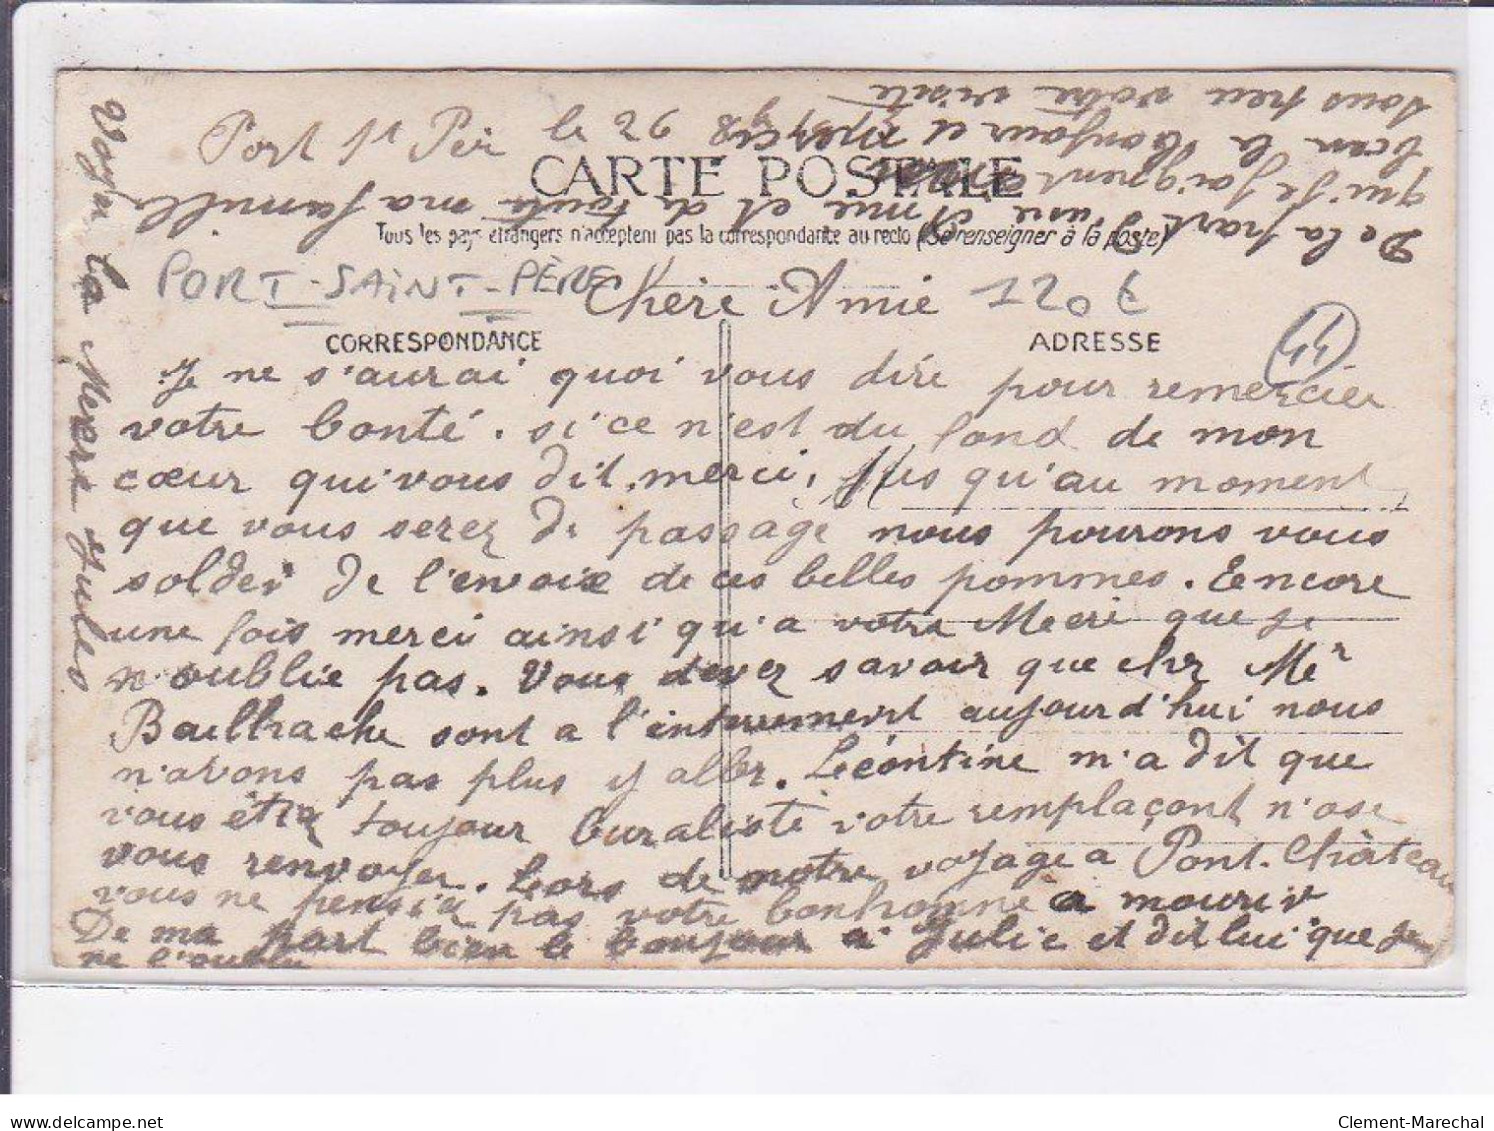 Port St Pèr le 26
CARTE POSTALE
Tous les pays étrangers n'acceptent pas la correspondance au recto (Se renseigner à la poste)
PORT-SAINT-PÈRE Chère Amie 120 €
CORRESPONDANCE ADRESSE 44
Je ne s'aurai quoi vous dire pour remercier
votre bonté. si ce n'est du fond de mon
cœur qui vous dit merci, Jus qu'au moment
que vous serez de passage nous pourons vous
solder de l'envoie de ces belles pommes. Eencore
une fois merci ainsi qu'a votre Meeri que je
n'oublie pas. Vous devez savoir que chz Mer
Bailhache sont a l'enterrement aujourd'hui nous
n'avons pas plus y aller. Léontine m'a dit que
vous étiez toujour buraliste votre remplaçant n'ose
vous renvoyer. Lors de notre voyage a Pont-Château
vous ne pensia pas votre bonhomne a mourir
De ma part bien le boujour a Julie et dit lui que je
ne l'oublie
De la part d'une Amie et de toute ma famille
qui se joignent
bien la Bonjour et merci
sous peu votre visite
Voyn la Mere Jules
Clement-Marechal
delcampe.net